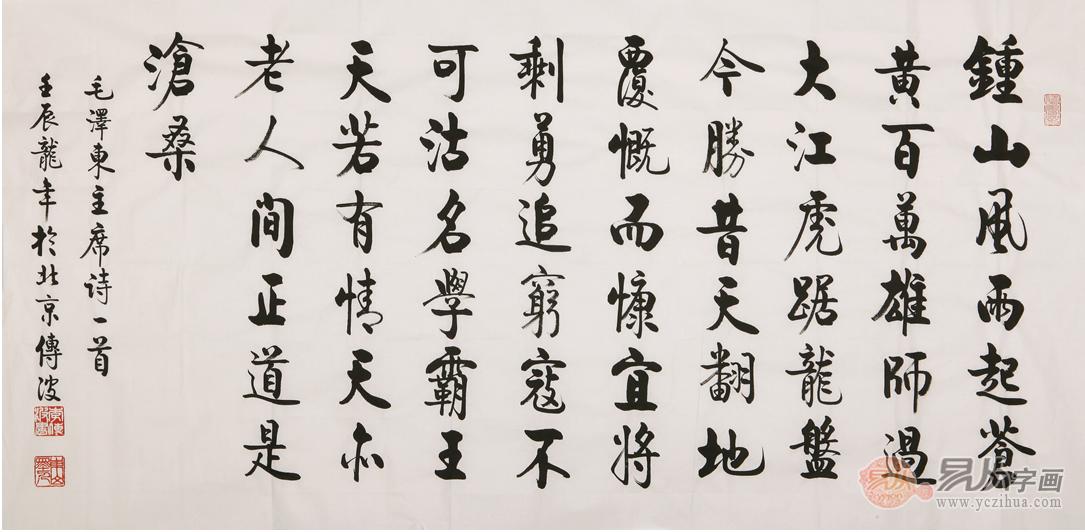 鍾山風雨起蒼
黄百萬雄師過
大江虎踞龍盤
今勝昔天翻地
覆慨而慷宜將
剩勇追窮寇不
可沽名學霸王
天若有情天亦
老人間正道是
滄桑
毛澤東主席诗一首
壬辰龍年於北京傳波
易从字画
www.yczihua.com